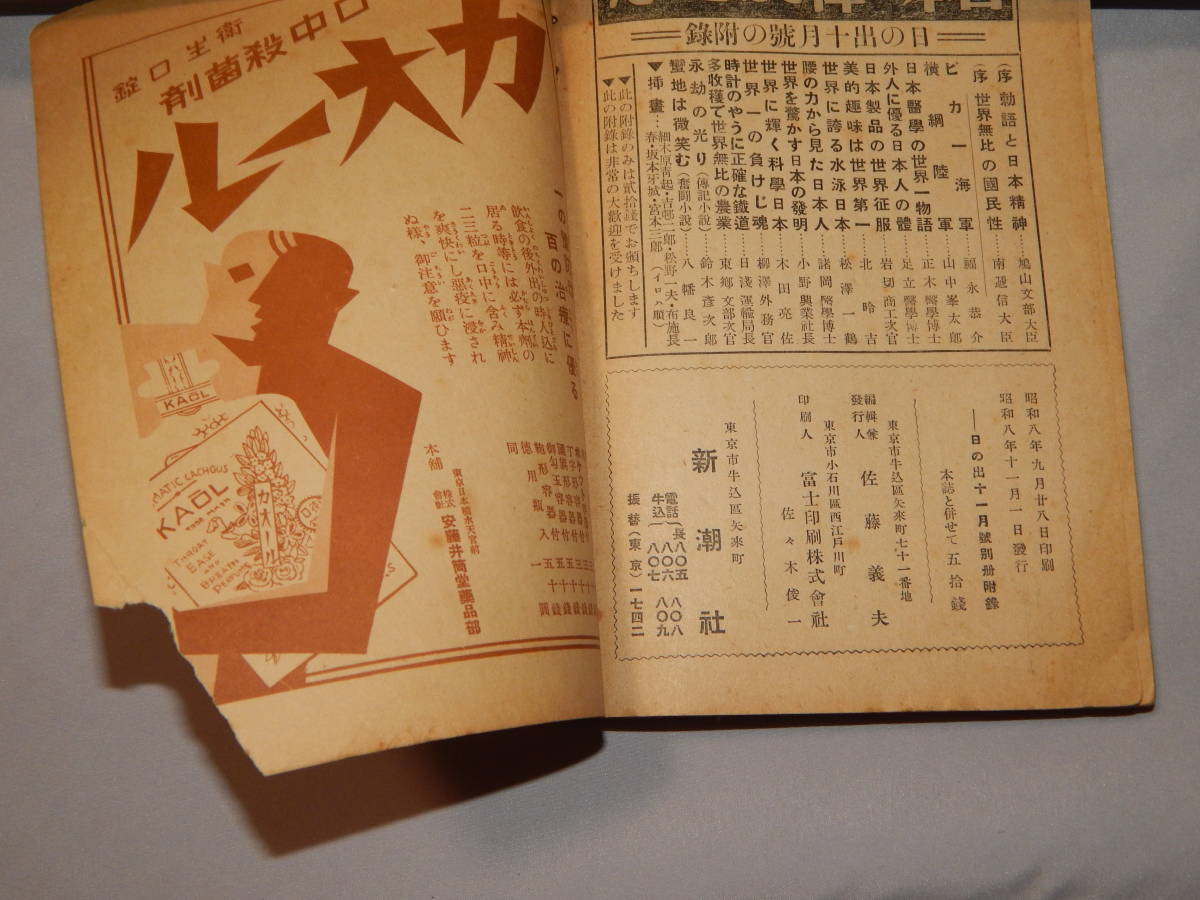 日の出十月號の附錄
(序) 勅語と日本精神……鳩山文部大臣
(序) 世界無比の國民性……南遞信大臣
ピカ一海軍……福永恭介
橫綱陸軍……山中峯太郎
日本醫學の世界一物語……正木醫學博士
外人に優る日本人の體……足立醫學博士
日本製品の世界征服……岩切商工次官
美的趣味は世界第一……北昤吉
世界に誇る水泳日本……松澤一鶴
腰の力から見た日本人……諸岡醫學博士
世界を驚かす日本の發明……小野興業社長
世界に輝く科學日本……木田亮佐
世界一の負けじ魂……柳澤外務官
時計のやうに正確な鐵道……日淺運輸局長
多收穫で世界無比の農業……東鄉文部次官
永劫の光り(傳記小說)……鈴木彥次郎
蠻地は微笑む(奮闘小說)……八幡良一
▼揷畫…細木原靑起・吉邨二郎・松野一夫・布施長春・坂本牙城・宮本三郎(イロハ順)
▼此の附錄のみは貳拾錢でお頒ちします
▼此の附錄は非常の大歡迎を受けました
昭和八年九月廿八日印刷
昭和八年十一月一日發行
―日の出十一月號別册附錄
本誌と倂せて五拾錢
東京市牛込區矢來町七十一番地
編輯兼發行人 佐藤義夫
東京市小石川區西江戶川町
印刷人 富士印刷株式會社
佐々木俊一
東京市牛込區矢來町
新潮社
電話牛込(長)八〇五 八〇六 八〇七 八〇八 八〇九
振替(東京)一七四二
衛生口錠
口中殺菌劑
カオール
一の豫防は百の治療に優る
飮食の後外出の時人込に
居る時等には必ず本劑の
二三粒を口中に含み精神
を爽快にし惡疫に浸され
ぬ樣、御注意を願ひます
KAOL
MATIC CACHOUS
KAOL
TRADE MARK
カオール
THROAT EASE AND BREATH PERFUME
丁字形容器付
國旗形容器付
御勾玉容器付 五十錢
鞄形容器付 五十錢
德用瓶入 一圓
同
本舖
東京日本橋水天宮前
株式會社 安藤井筒堂藥品部